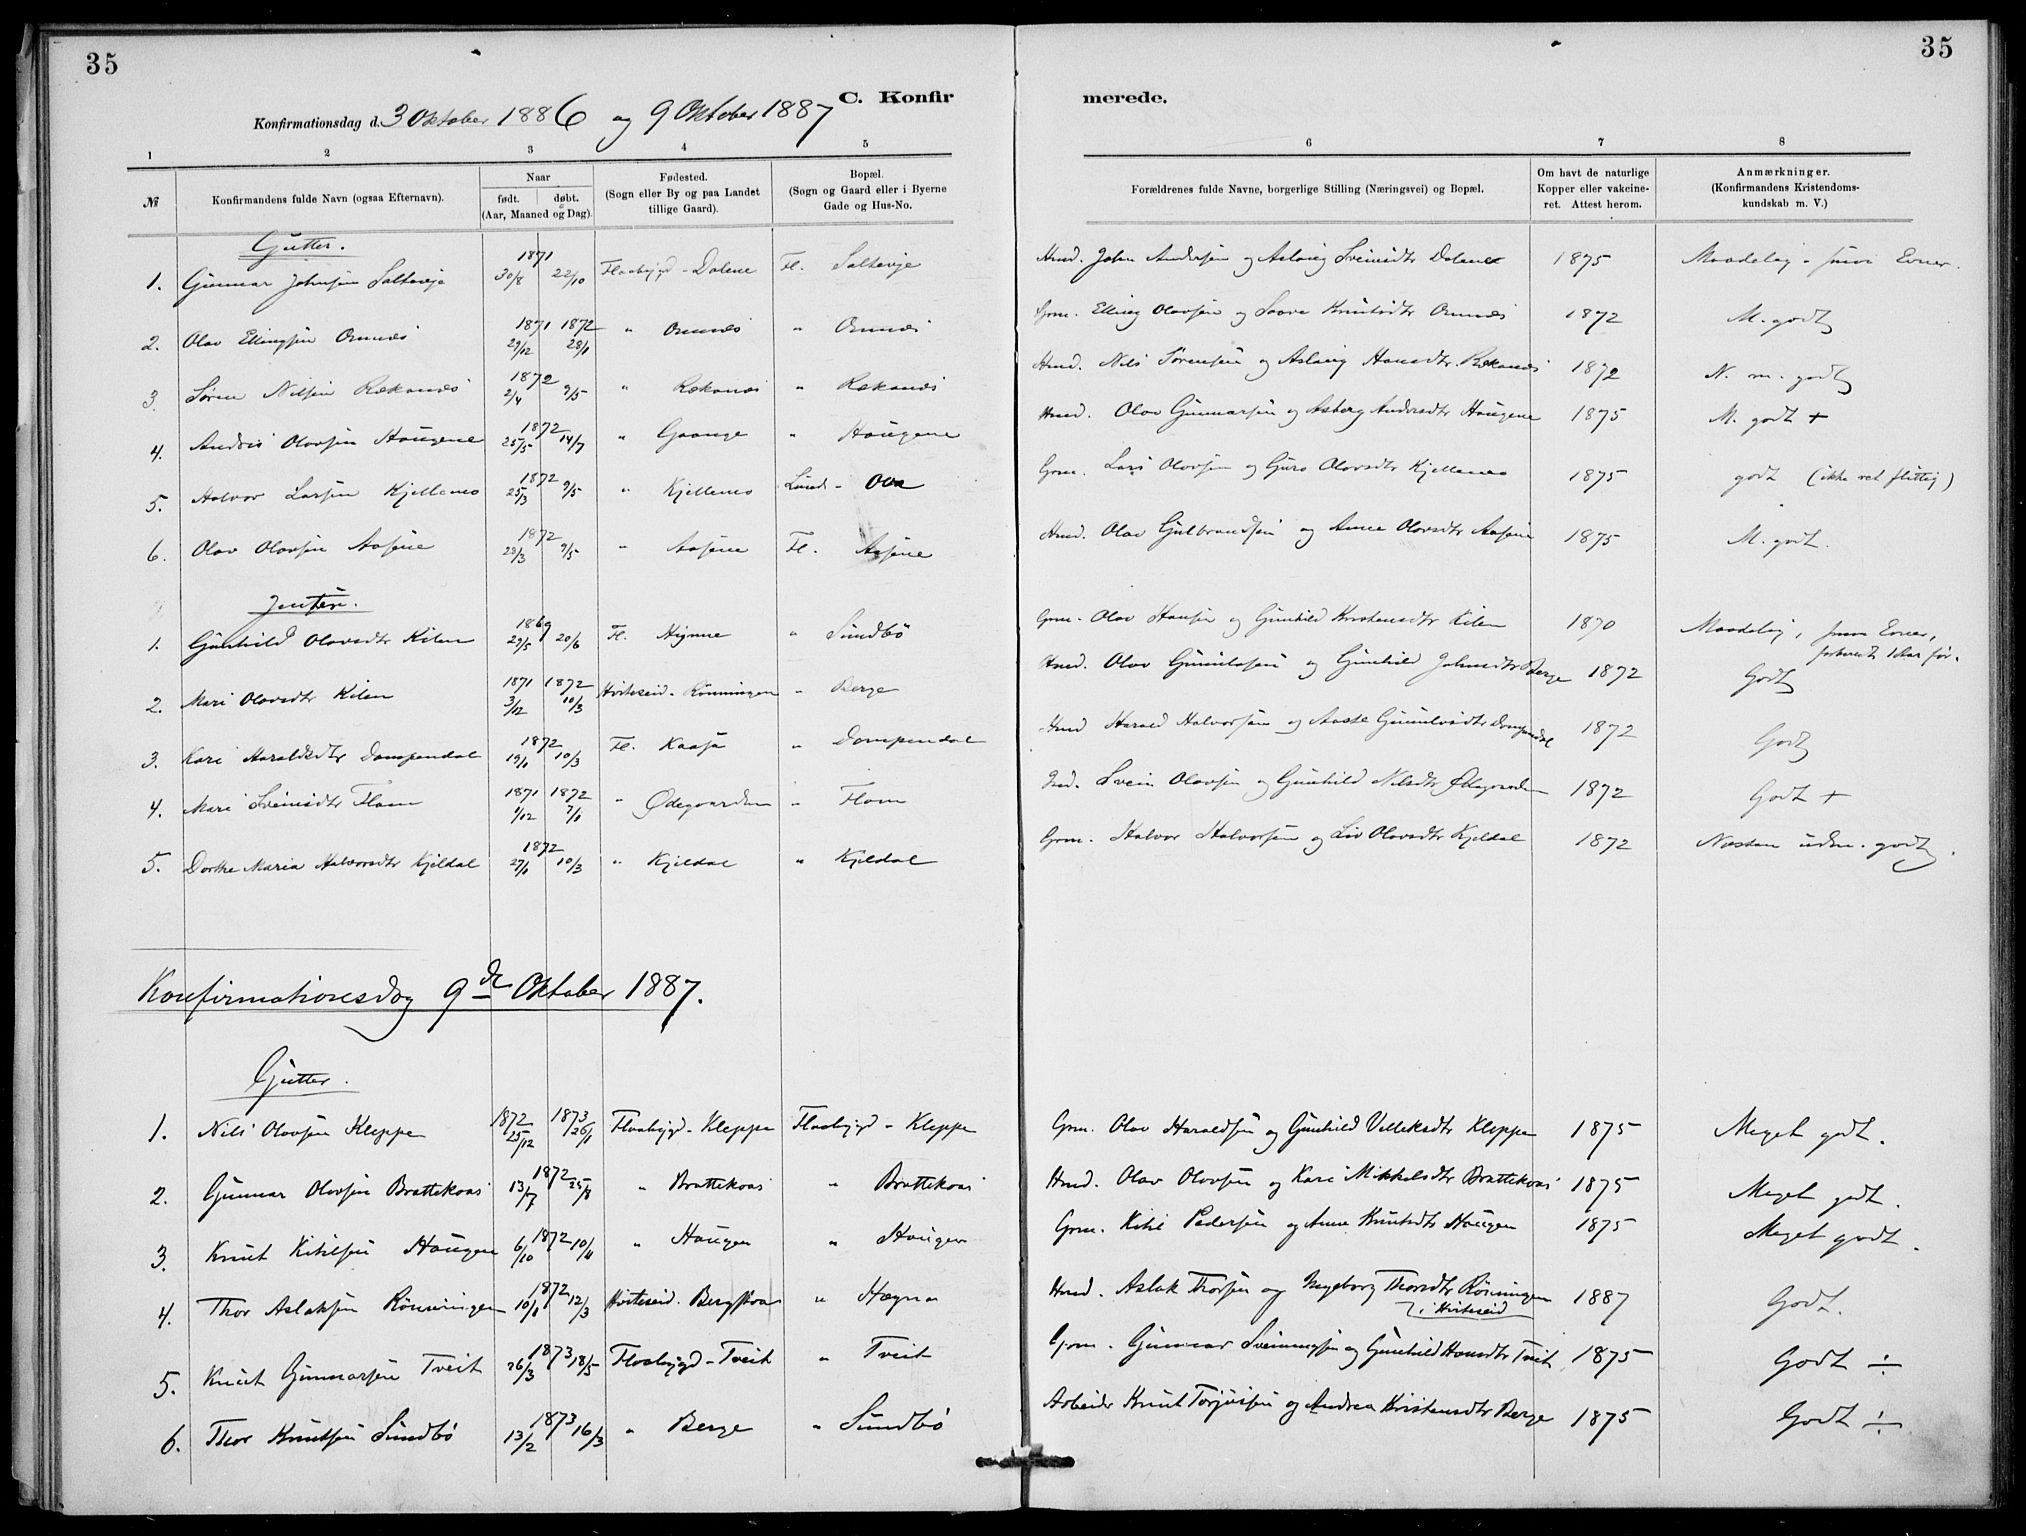 35
35
C. Konfir merede.
Konfirmationsdag d. 3 Oktober 1886 og 9 Oktober 1887
1 2 3 4 5 6 7 8
№ Konfirmandens fulde Navn (ogsaa Efternavn). Naar født. døbt. (Aar, Maaned og Dag). Fødested. (Sogn eller By og paa Landet tillige Gaard). Bopæl. (Sogn og Gaard eller i Byerne Gade og Hus-No. Forældrenes fulde Navne, borgerlige Stilling (Næringsvei) og Bopæl. Om havt de naturlige Kopper eller vakcineret. Attest herom. Anmærkninger. (Konfirmandens Kristendomskundskab m. V.)
Gutter.
1. Gunnar Johnsen 1871 30/8 22/10 Flaabygd - Dalene Fl. Hmd. John Andersen og Aslaug Sveinsdtr Dalene 1875 Maadelig - smaa Evner.
2. Olav Ellingsen Omnæs 1871 29/12 1872 28/1 " Omnæs " Omnæs Grm. Elling Olavsen og Knutsdtr Omnæs 1872 M. godt
3. Søren Nilsen Rækanæs 1872 2/4 9/5 " Rækanæs " Rækanæs Hmd. Nils Sørensen og Aslaug Hansdtr. Rækanæs 1872 N. m. godt
4. Andres Olavsen Haugene 1872 25/5 14/7 " " Haugene Hmd. Olav Gunnarsen og Asberg Andersdtr Haugene 1875 M. godt +
5. Halvor Larsen Kjellemo 1872 25/3 9/5 " Kjellemo Lunde - Grm. Lars Olavsen og Guro Olavsdtr Kjellemo 1875 godt (ikke ret flittig)
6. Olav Olavsen Aasene 1872 28/3 9/5 " Aasene Fl. Aasene Hmd. Olav Gulbrandsen og Anne Olavsdtr Aasene 1875 M. godt.
Jenter.
1. Gunhild Olavsdtr Kilen 1869 29/5 20/6 Fl. " Sundbø Grm. Olav Hansen og Gunhild Kristensdtr Kilen 1870 Maadelig, smaa Evner, 1 Aar før.
2. Mari Olavsdtr Kilen 1871 3/12 1872 10/3 Hviteseid - Rønningen " Berge Hmd. Olav Gunnulfsen og Gunhild Johnsdtr Berge 1872 Godt
3. Kari Haraldsdtr Dampendal 1872 19/1 10/3 Fl. Kaasa " Dampendal Hmd Harald Halvorsen og Aaste Gunnulvsdtr Dampendal 1872 Godt
4. Mari Sveinsdtr Flom 1871 1/12 1872 7/1 " Ødegaarden " Flom Svein Olavsen og Gunhild Nilsdtr Ødegaarden 1872 Godt +
5. Dorthe Maria Halvorsdtr Kjeldal 1872 27/1 10/3 " Kjeldal " Kjeldal Grm. Halvor Halvorsen og Liv Olavsdtr Kjeldal 1872 Næsten udm. godt.
Konfirmationsdag 9de Oktober 1887.
Gutter.
1. Nils Olavsen Kleppe 1872 25/12 1873 26/1 Flaabygd - Kleppe Flaabygd - Kleppe Grm. Olav Haraldsen og Gunhild Villeksdtr Kleppe 1875 Meget godt.
2. Gunnar Olavsen Brattekaas 1872 13/7 25/8 " Brattekaas " Brattekaas Hmd. Olav Olavsen og Kari Mikkelsdtr Brattekaas 1875 Meget godt.
3. Knut Kitilsen Haugen 1872 6/10 10/11 " Haugen " Haugen Grm. Kitil Pedersen og Anne Knutsdtr Haugen 1875 Meget godt.
4. Thor Aslaksen Rønningen 1872 10/1 12/3 Hviteseid. " Hægna Hmd. Aslak Thorsen og Ingeborg Thorsdtr Rønningen i Hviteseid 1887 Godt.
5. Knut Gunnarsen Tveit 1873 26/3 18/5 Flaabygd - Tveit " Tveit Grm. Gunnar Sveinungsen og Gunhild Hansdtr Tveit 1875 Godt ÷
6. Thor Knutsen Sundbø 1873 13/2 16/3 " Berge " Sundbø Arbeider Knut Torjusen og Andrea Kristensdtr Berge 1875 Godt ÷